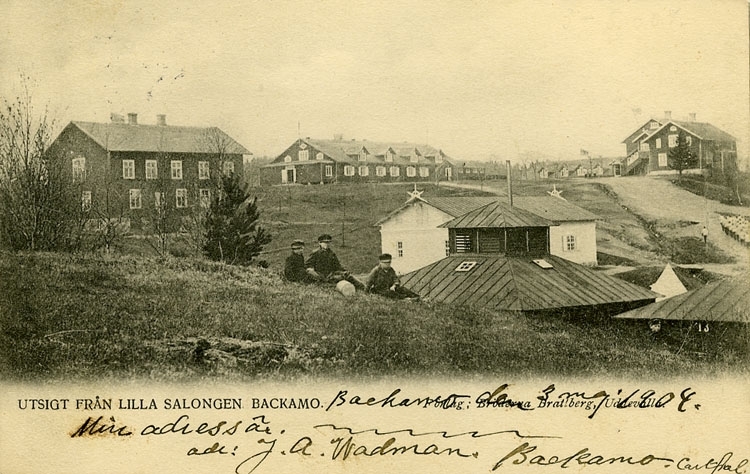 UTSIGT FRÅN LILLA SALONGEN. BACKAMO. Backamo den 3 maj 1904.
Förlag: Bröderna Brattberg, Uddevalla.
Min adress är.
adr: J. A. Wadman. Backamo.
13